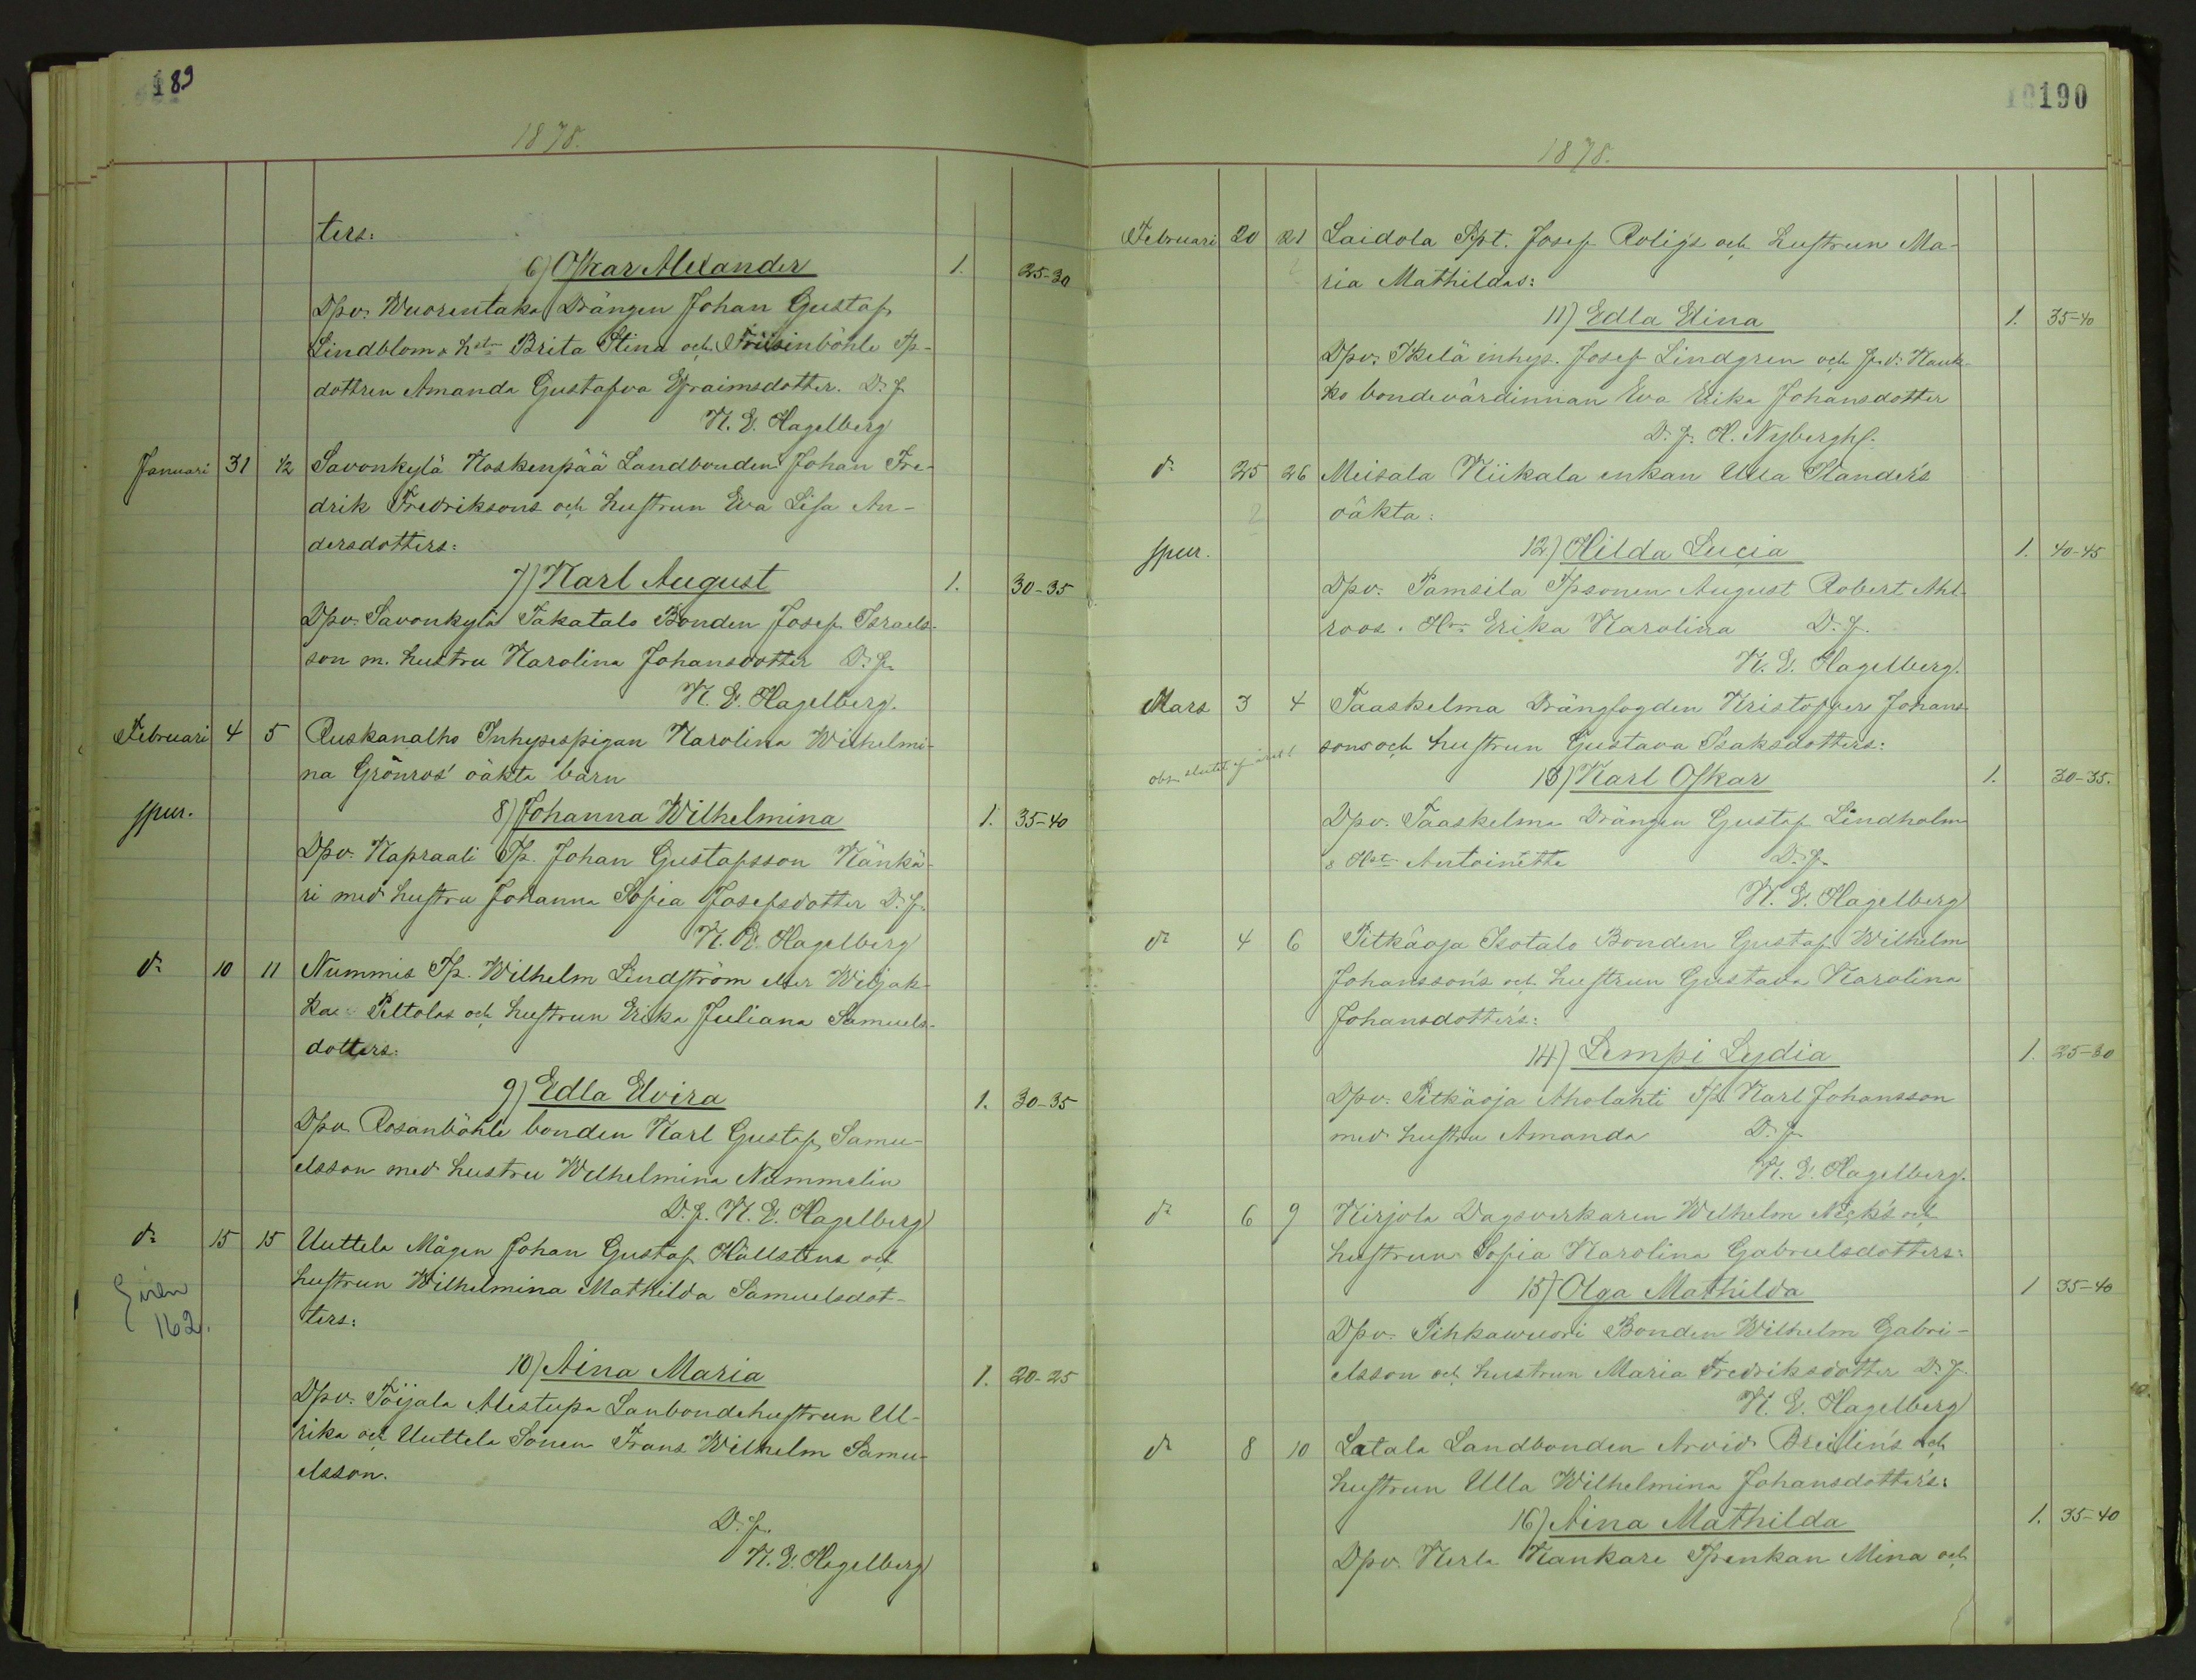 189
1878.
ters:
6) Oskar Alexander 1. 25-30
Dpv. Wuorentaka Drängen Johan Gustaf
Lindblom & hstr Brita Stina och Friisinböhle Tp-
dottren Amanda Gustafva Efraimsdotter. D. f.
K. E. Hagelberg
Januari 31 1/2 Savonkylä Koskenpää Landbonden Johan Fre-
drik Fredriksons och hustrun Eva Lisa An-
dersdotters:
7) Karl August 1. 30-35
Dpv. Savonkylä Takatalo Bonden Josef Israels-
son m. hustru Karolina Johansdotter D. f.
K. E. Hagelberg.
Februari 4 5 Ruskanalho Inhysespigan Karolina Wilhelmi-
na Grönros' oäkta barn
spur. 8) Johanna Wilhelmina 1. 35-40
Dpv. Kapraali Tp. Johan Gustafsson Känkä-
ri med hustru Johanna Sofia Josefsdotter D. f.
K. E. Hagelberg
do 10 11 Nummis Tp. Wilhelm Lindström eller Wiljak-
ka Peltolas och hustrun Erika Juliana Samuels-
dotters:
9) Edla Elvira 1. 30-35
Dpv. Rosanböhle bonden Karl Gustaf Samu-
elsson med hustru Wilhelmina Nummelin
D. f. K. E. Hagelberg
do 15 15 Uuttela Mågen Johan Gustaf Hällstens och
hustrun Wilhelmina Mathilda Samuelsdot-
162.
ters:
10) Aina Maria 1. 20-25
Dpv. Töijala Alestupa Lanbondehustrun Ul-
rika och Uuttela Sonen Frans Wilhelm Samu-
elsson.
D. f.
K. E. Hagelberg
190
1878.
Februari 20 21 Laidola Spt. Josef Rolig's och hustrun Ma-
ria Mathildas:
11) Edla Elina 1. 35-40
Dpv. Ikelä inhys. Josef Lindgren och f. d. Kauk-
ko bondevärdinnan Eva Erika Johansdotter
D. f. H. Nybergh.
do 25 26 Meisala Kiikala enkan Ulla Standers
oäkta:
spur. 12) Hilda Lucia 1. 40-45
Dpv. Pamsila Tpsonen August Robert Ahl-
roos. Hn Erika Karolina D. f.
K. E. Hagelberg.
Mars 3 4 Taaskelma Drängfogden Kristoffer Johans-
sons och hustrun Gustava Isaksdotters:
obs. slutet af året!
13) Karl Oskar 1. 30-35.
Dpv. Taaskelma Drängen Gustaf Lindholm
& Hst Antoinette D. f.
K. E. Hagelberg
do 4 6 Pitkäoja Isotalo Bonden Gustaf Wilhelm
Johansson's och hustrun Gustava Karolina
Johansdotters:
14) Lempi Lydia 1. 25-30
Dpv. Pitkäoja Aholahti Tp. Karl Johansson
med hustru Amanda D. f.
K. E. Hagelberg.
do 6 9 Kirjola Dagsverkaren Wilhelm Nick's och
hustrun Sofia Karolina Gabrielsdotters:
15) Olga Mathilda 1 35-40
Dpv. Pihkawuori Bonden Wilhelm Gabri-
elsson och hustrun Maria Fredriksdotter D. f.
K. E. Hagelberg
do 8 10 Latala Landbonden Arvid Breilin's och
hustrun Ulla Wilhelmina Johansdotter's:
16) Aina Mathilda 1. 35-40
Dpv. Kerla Kankare Tpenkan Mina och